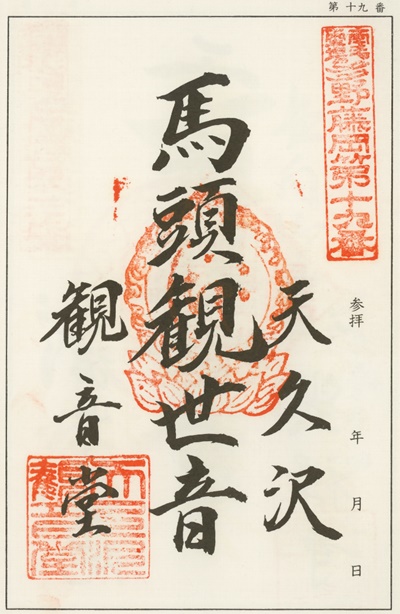 第十九番
霊場多野藤岡第十九番
参拝 年 月 日
天久沢
馬頭観世音
観音堂